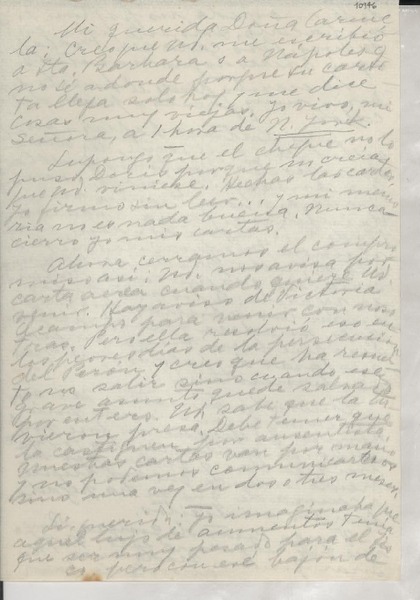 10946
Mi querida Doña Carme
la: Creo que Ud. me escribió
a Sta. Bárbara o a Nápoles o
no sé adonde porque su carta
ta llega solo hoy y me dice
cosas muy viejas. Yo vivo, mi
Señora, a 1 hora de N. York.
Supongo que el cheque no lo
puso Doris porque no creía
que Ud. viniese. Hechas las cartas,
yo firmo sin leer... y mi memo
ria no es nada buena. Nunca
cierro yo mis cartas.
Ahora cerramos el compro
miso así: Ud. nos avisa por
carta aérea cuando quiere Ud.
venir. Hay aviso de Victoria
Ocampo para venir con noso
tras. Pero ella resolvió eso en
los peores días de la persecución
del Perón y creo que ha resuel
to no salir sino cuando ese
grave asunto quede salvado
por entero. Ud. sabe que la tu
vieron presa. Debe temer que
la confisquen por ausentista.
Nuestras cartas van por mano
y no podemos comunicarnos
sino una vez en dos o tres meses.
Sí, querida, yo imaginaba que
aquel lujo de aumentos tenía
que ser muy pesado para el
pero con ese bajón de